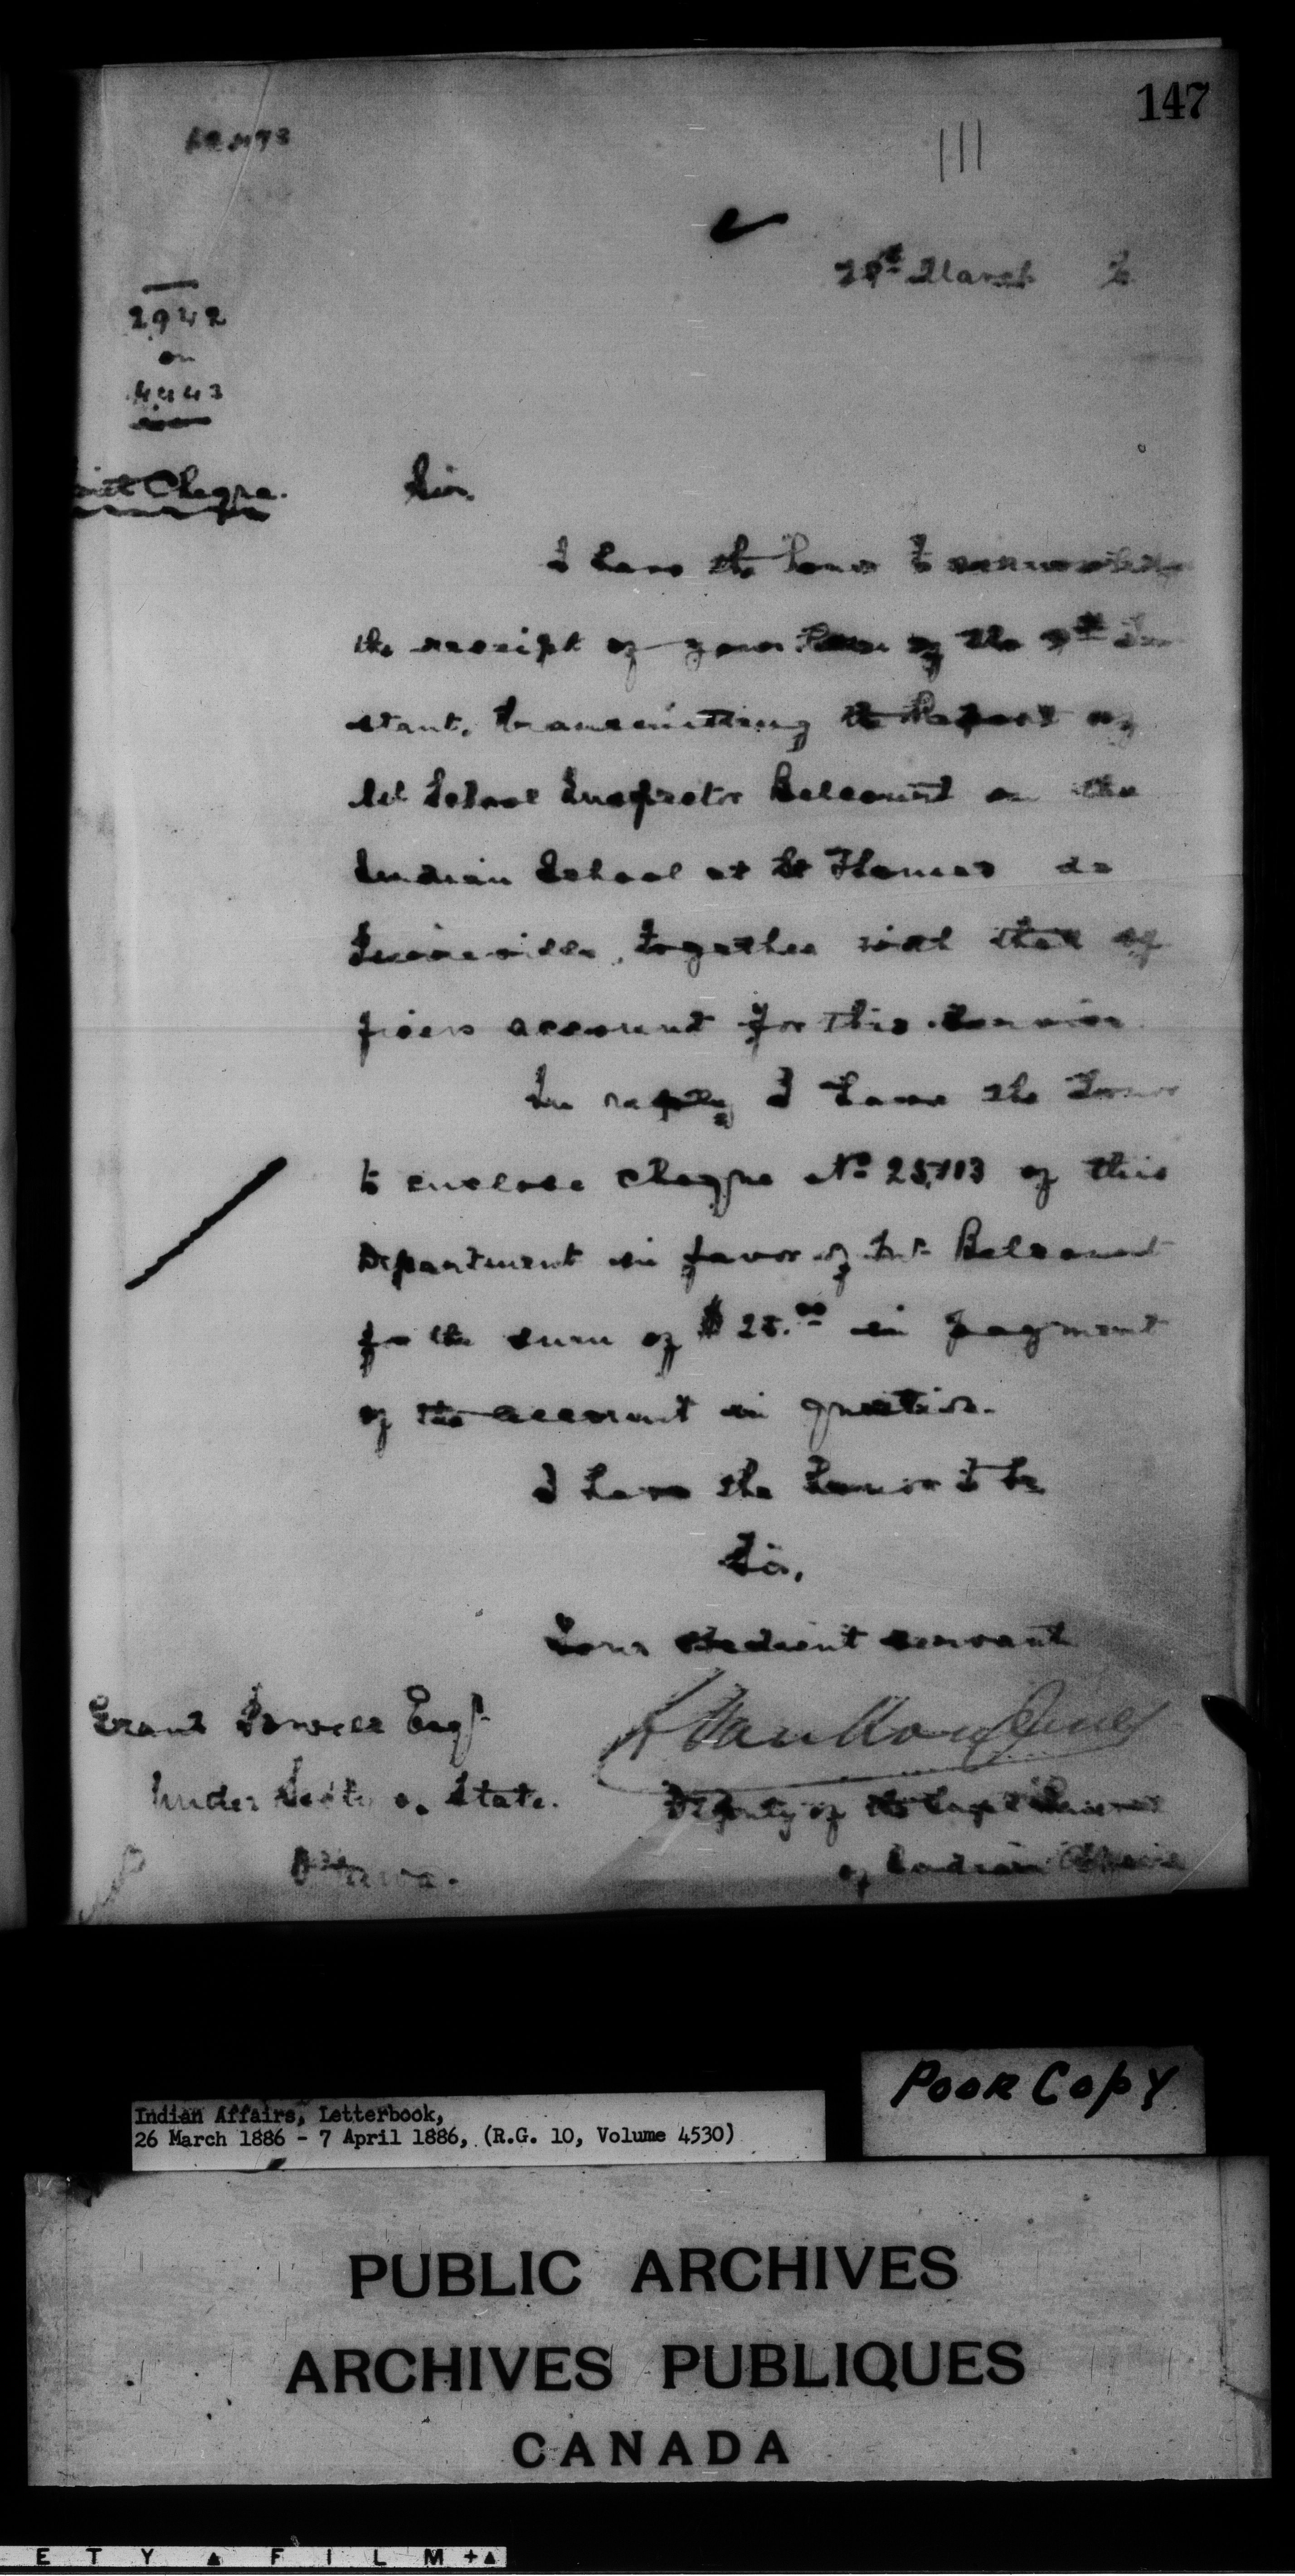 147
111
29th March
2942
on
4443
Cheque.
Sir,
I have the honor to acknowledge
the receipt of your letter of the 9th In-
stant, transmitting the Report of
School Inspector Belcourt on the
Indian School at St Thomas de
Pierreville, together with that of
ficers account for this service.
In reply I have the honor
to enclose cheque No 25,113 of this
Department in favor of Mr Belcourt
for the sum of $25.00 in payment
of the account in question.
I have the honor to be
Sir,
Your obedient servant
L. VanKoughnet
Grant Powell Esqr
Under Secty. o. State.
Deputy of the Supt General
Ottawa.
of Indian Affairs
POOR COPY
Indian Affairs, Letterbook,
26 March 1886 - 7 April 1886, (R.G. 10, Volume 4530)
PUBLIC ARCHIVES
ARCHIVES PUBLIQUES
CANADA
E T Y ▲ F I L M + ▲